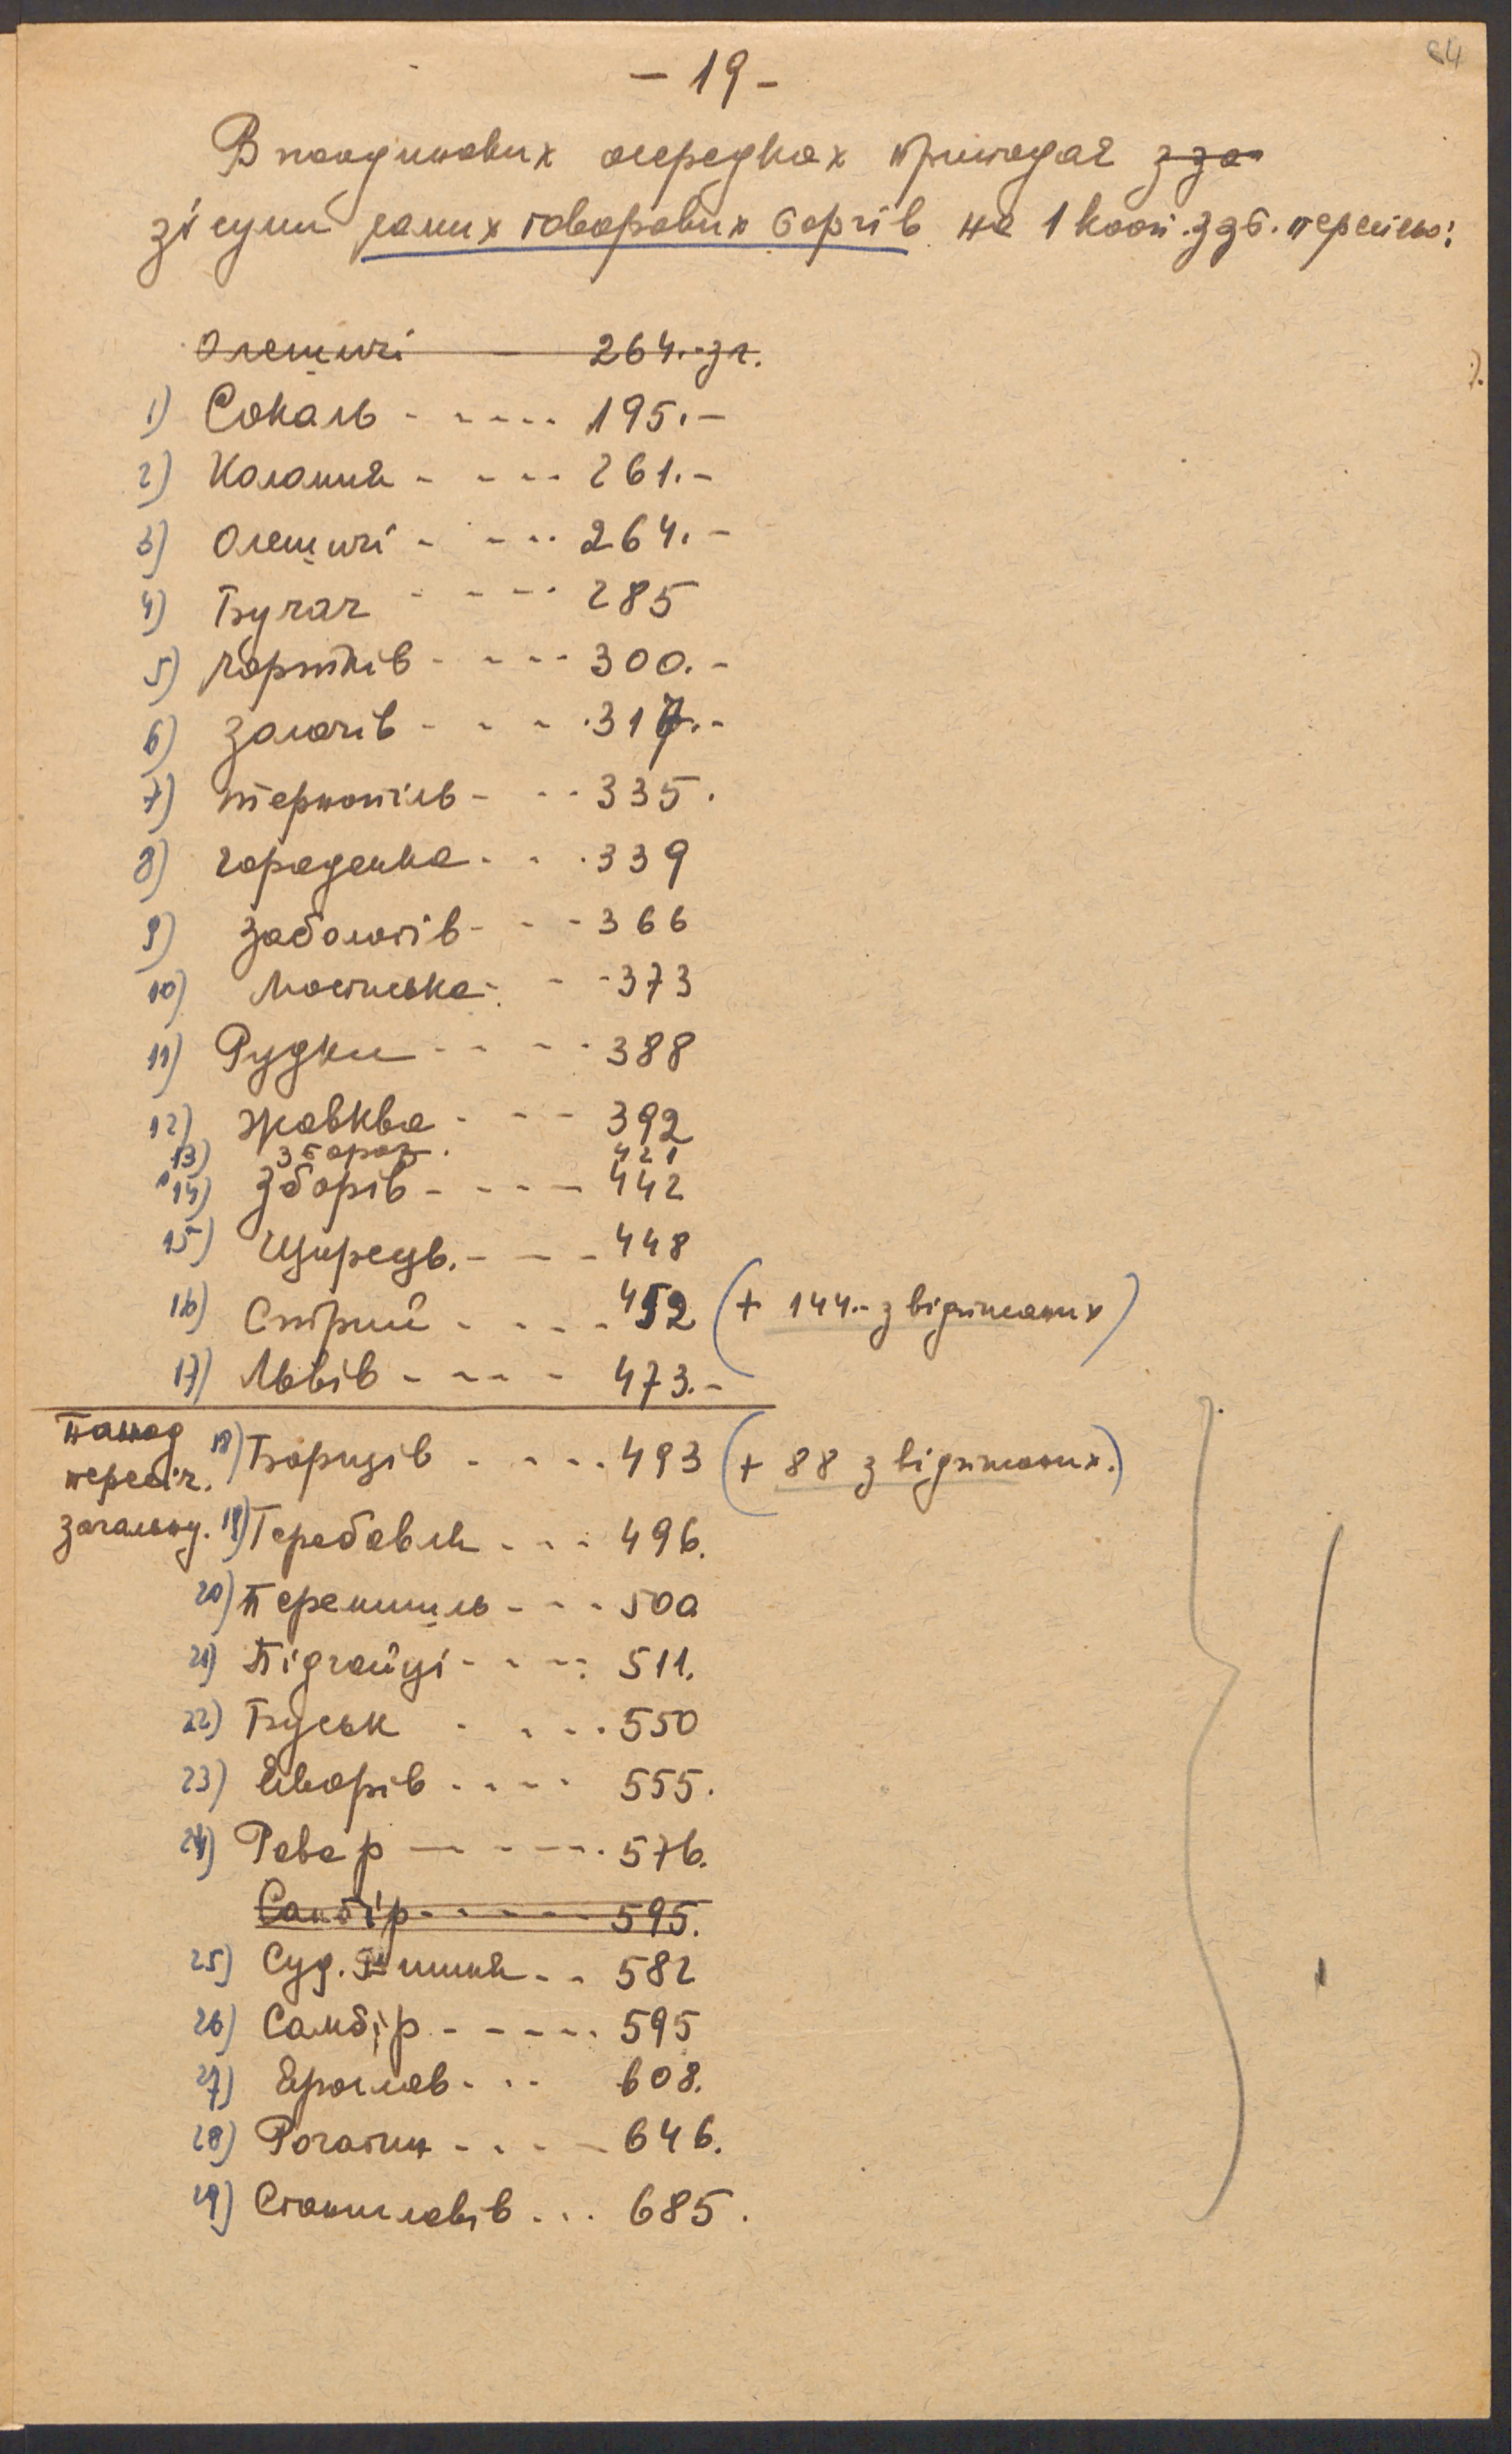 - 19 -
64
В поодиноких осередках припадає з за
зі суми самих товарових боргів на 1 кооп. здб. пересічно:
Олешичі - 264.- зл.
1) Сокаль - - - - - 195.-
2) Коломия - - - - 261.-
3) Олешичі - - - - 264.-
4) Бучач - - - - 285
5) Чортків - - - - 300.-
6) Золочів - - - - 317.-
7) Тернопіль - - - 335.
8) Городенка - - - 339
9) Заболотів - - - 366
10) Мостиська - - - 373
11) Рудки - - - - 388
12) Жовква - - - 392
13) Збараж. 421
14) Зборів - - - - 442
15) Щирець. - - - 448
16) Стрий - - - - 452 (+ 144.- з відпнтаних)
17) Львів - - - - 473.-
Понад
пересіч.
загальну.
18) Борщів - - - - 493 (+ 88 з відпнтаних.)
19) Теребовля - - - 496.
20) Перемишль - - - 500
21) Підгайці - - - - 511.
22) Буськ - - - - 550
23) Яворів - - - - 555.
24) Рава р - - - - 576.
Самбір - - - - - 595.
25) Суд. Вишня - - 582
26) Самбір - - - - - 595
27) Ярослав - - - 608.
28) Рогатин - - - - 646.
29) Станиславів . . . 685.